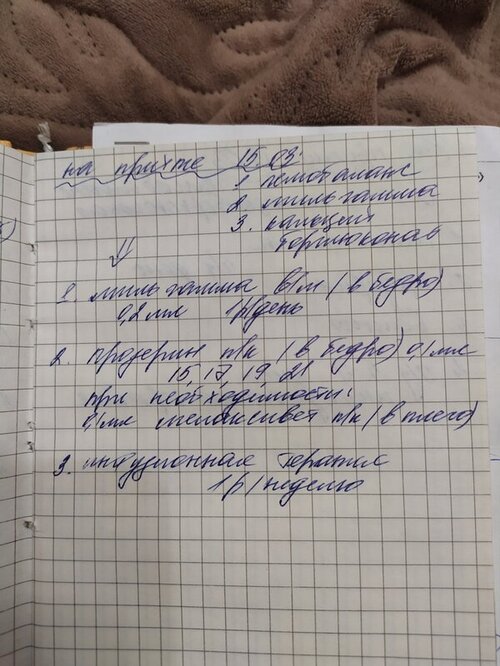 на приёме 15.03.
1 гемобаланс
2 мильгамма
3. кальция
борглюконат
1. мильгамма в/м (в бедро)
0,2 мл 1р/день
2. прозерин п/к (в бедро) 0,1 мл
15, 17, 19, 21
при необходимости:
0,1 мл мелоксивет п/к (в плечо)
3. инфузионная терапия
1р/неделю